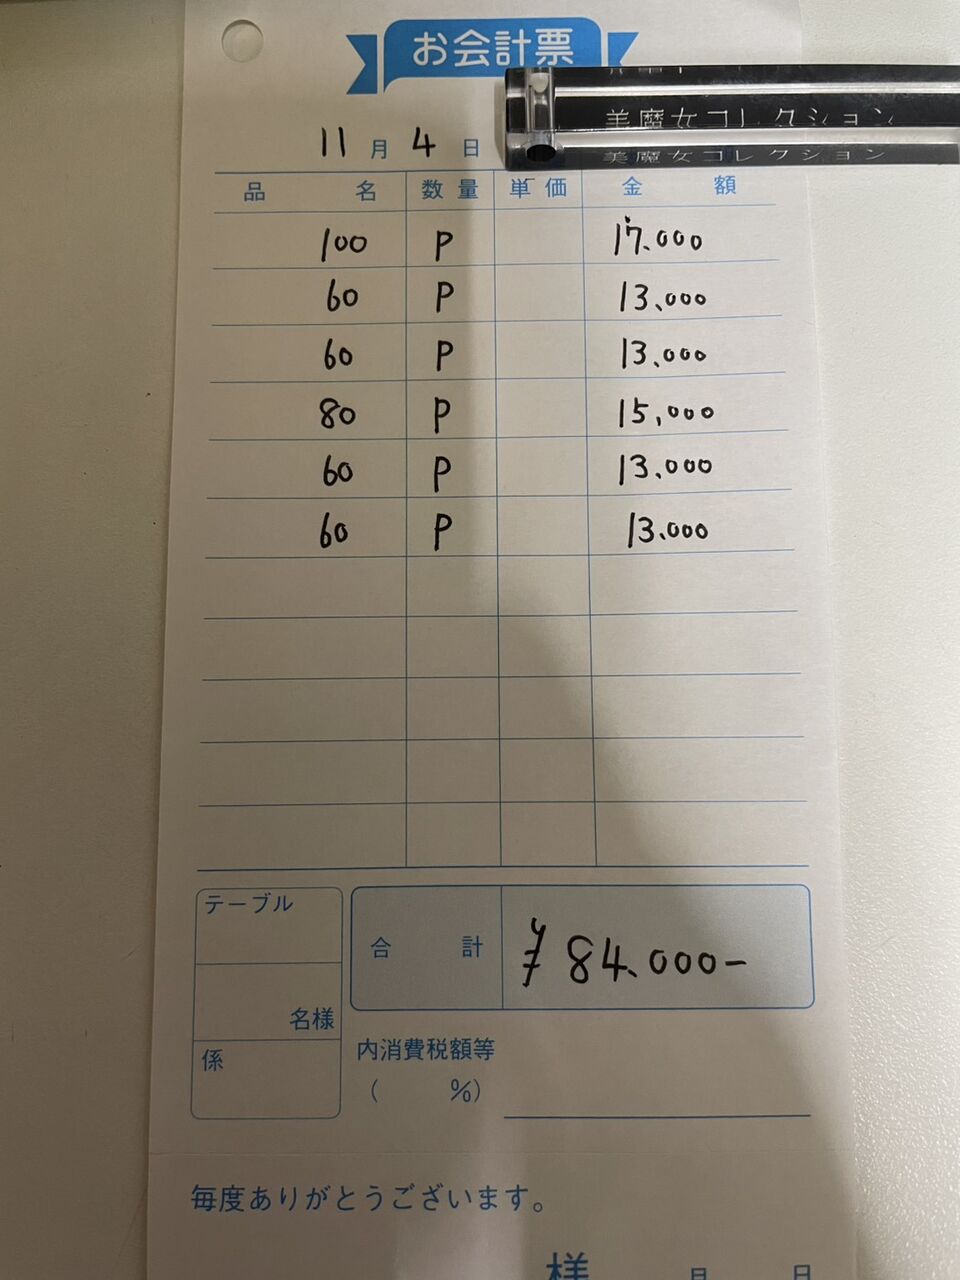 お会計票
美魔女コレクション
美魔女コレクション
11月4日
品名 数量 単価 金額
100 P 17.000
60 P 13.000
60 P 13.000
80 P 15,000
60 P 13.000
60 P 13.000
テーブル
合計 ¥84.000-
名様
係
内消費税額等
( %)
毎度ありがとうございます。
様 月 日